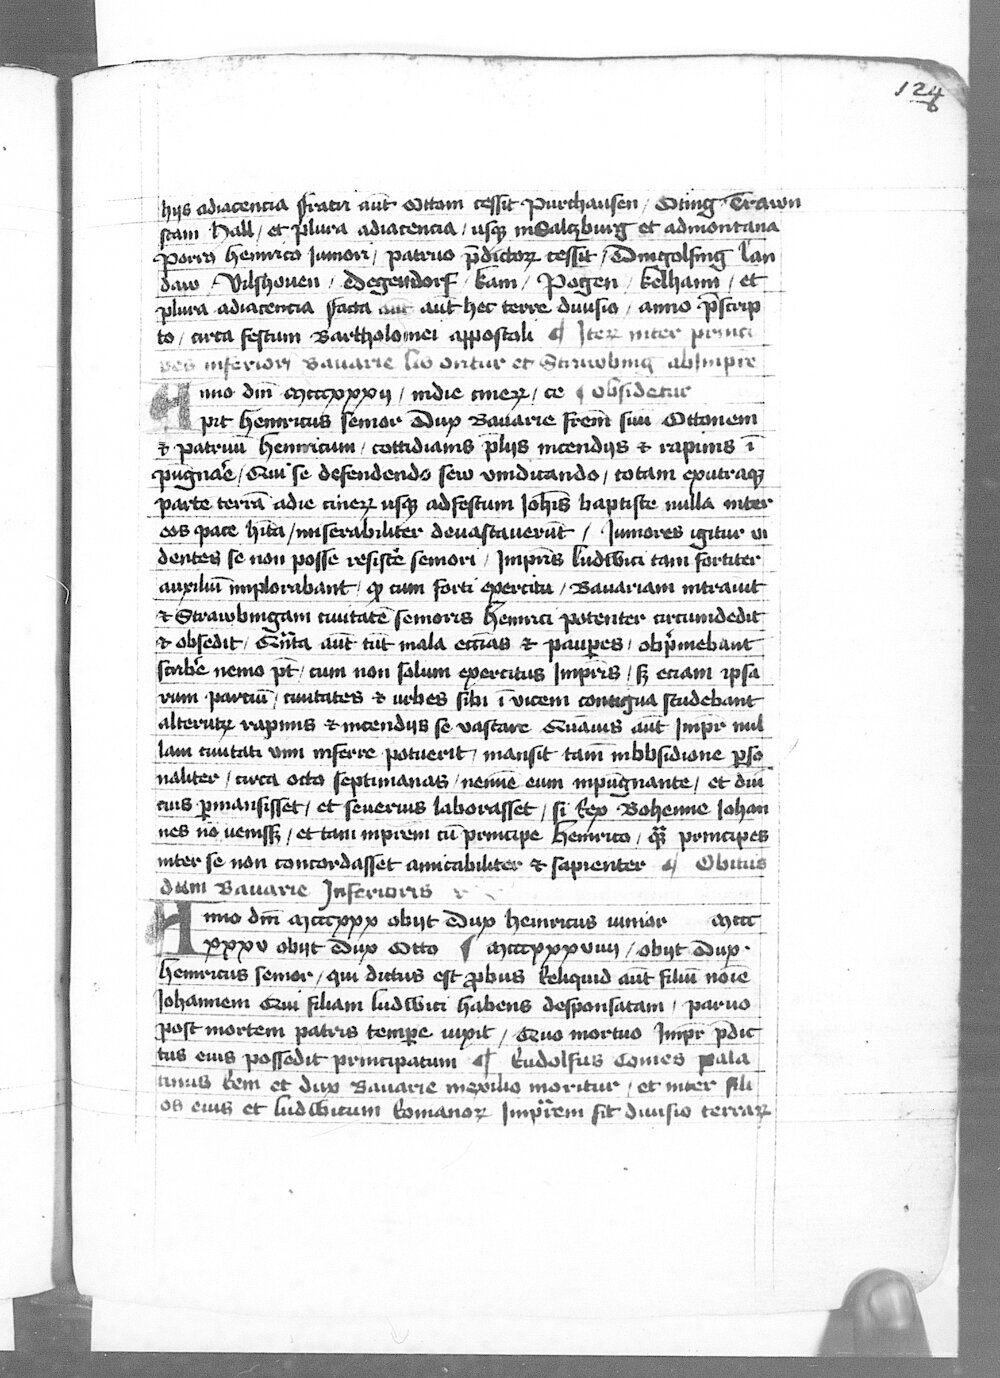 124
6
hijs adiacencia fratri aūt Ottoni cessit Purchausen / Oting Trawn
stain Hall / et plura adiacencia / usqꝫ in Salczburg et admontana
Porro Heinrico Iuniori / patruo p̄dictoꝝ cessit / Dingolfing Lan
daw / Vilshoven / Degendorf / Kam / Pogen / Kelhaim / et
plura adiacencia facta aūt hec terre divisio / anno p̄scrip
to / circa festum Bartholomei appostoli ¶ Iteꝝ inter princi
pes inferioris Bavarie lis oritur et Strawbing ab Impre
Anno dm̄ mcccxxxii / in die cineꝝ / ce ¶ obsidetur
pit Heinricus senior Dux Bavarie frēm suū Ottonem
et patruū Heinricum / cottidianis p̄lijs incendijs et rapinis ī
pugnar̄e / Qui se defendendo sew vindicando / totam ex utraqꝫ
parte terrā a die cineꝝ usqꝫ ad festum Ioh̄is baptiste nulla inter
eos pace hīta / miserabiliter devastaverūt / Iuniores igitur vi
dentes se non posse resist̄e seniori / Imp̄ris Ludwici tam fortiter
auxiliū implorabant / qͥ cum forti exercitu / Bavariam intravit
et Strawbingam civitatē senioris Heinrici potenter circumdedit
et obsedit / Qn̄ta aūt tūc mala ecc̄ias et paup̄es / opp̄mebant
scrib̄e nemo pt̄ / cum non solum exercitus Imp̄ris / sꝫ eciam ipsa
rum parciū / civitates et urbes sibi ī vicem contigua studebant
alterutꝝ rapinis et incendijs se vastare Quāvis aūt Imp̄r nul
lam civitati vim inferre potuerit / mansit tam̄ in obsidione p̱so
naliter / circa octo septimanas / neminē eum inpugnante / et diu
cius p̱mansisset / et severius laborasset / si Rex Bohemie Iohan
nes nō venissꝫ / et tam inprem cū principe Heinrico / qͣꝫ principes
inter se non concordasset amicabiliter et sapienter ¶ Obitus
ducum Bavarie Inferioris
Anno dm̄ mcccxxx obijt Dux Heinricus iunior mccc
xxxv obijt Dux Otto ¶ mcccxxxviiii / obijt Dux
Heinricus senior / qui dictus est p̱bus Reliquid aūt filiū noīe
Iohannem Qui filiam Ludwici habens desponsatam / parvo
post mortem patris tempore vixit / Quo mortuo Imp̄r p̄dic
tus eius possedit principatum ¶ Rudolfus Comes pala
tinus Reni et dux Bavarie in exilio moritur / et inter fili
os eius et Ludwicum Romanoꝝ Imp̄rem fit divisio terraꝝ